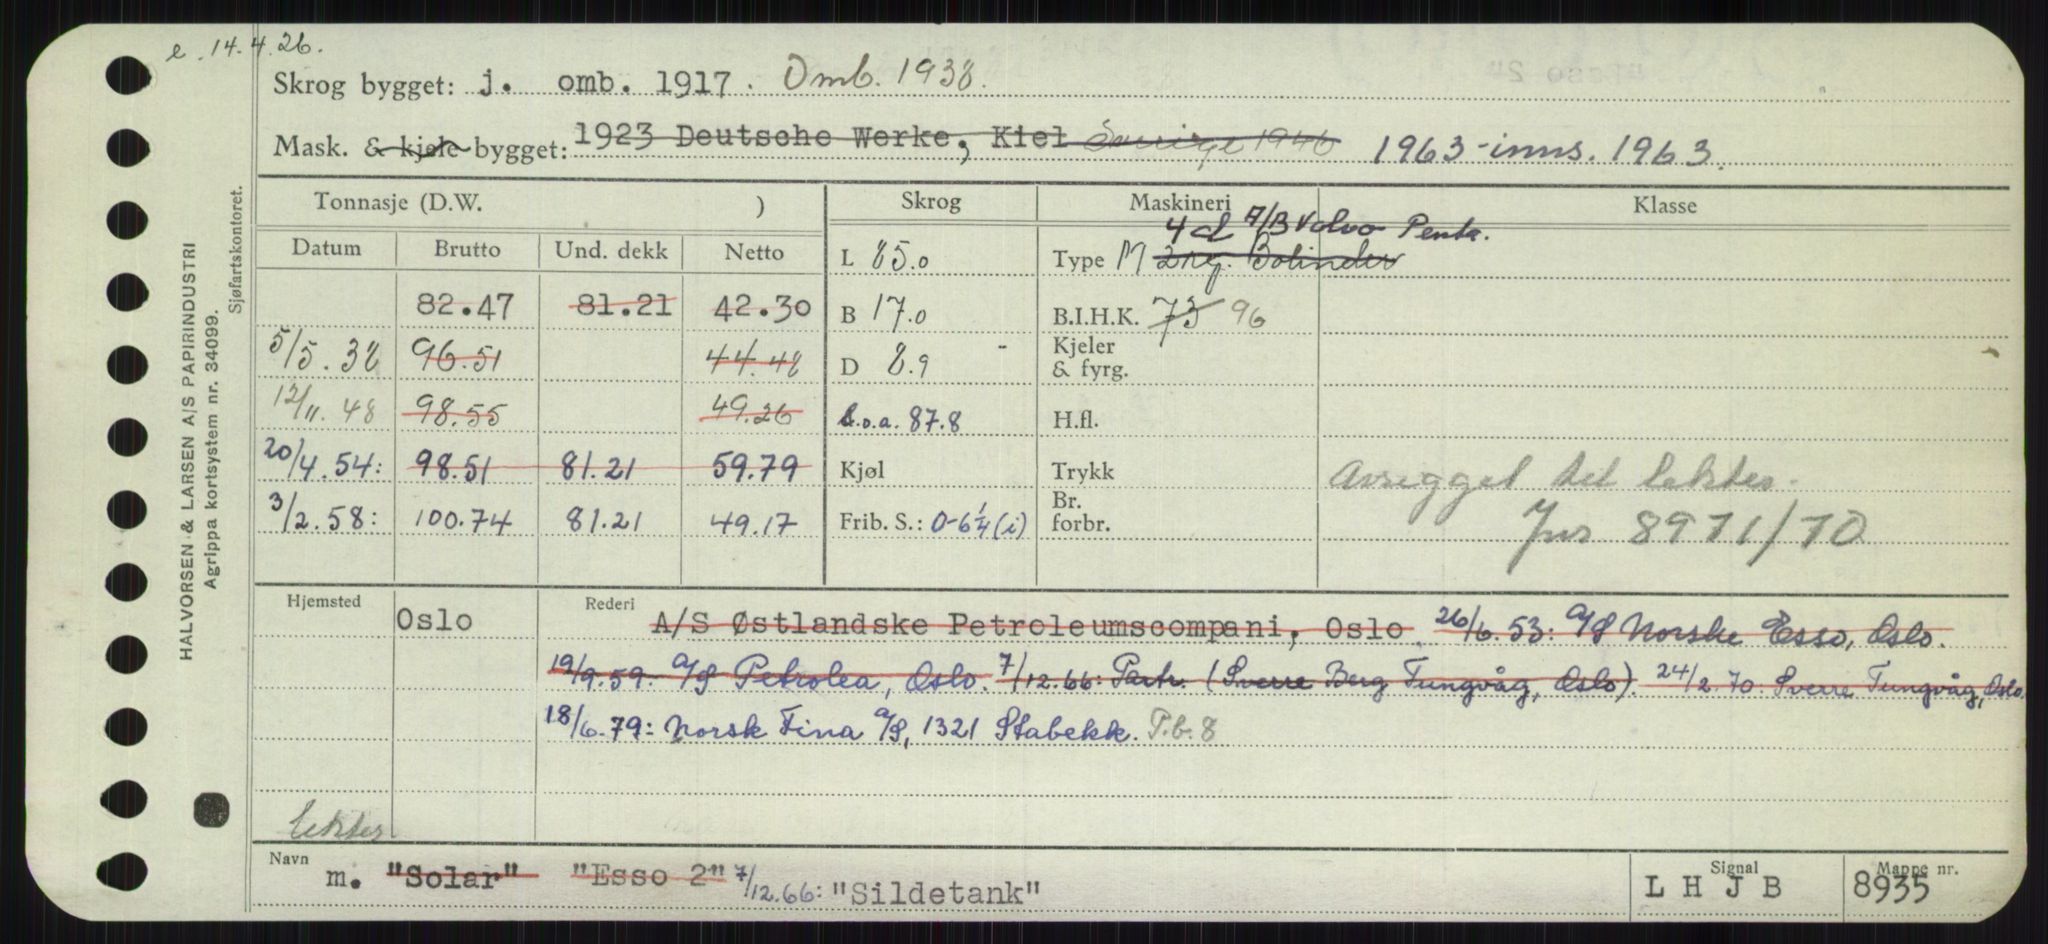 e. 14.4.26.
Skrog bygget: j. omb. 1917. Omb. 1938.
Mask. & kjele bygget: 1923 Deutsche Werke, Kiel Sverige 1946 1963 - inns. 1963.
Tonnasje (D.W. ) Skrog Maskineri Klasse
Datum Brutto Und. dekk Netto L 85.0 Type M 2 syl. Bolinder 4 cl A/B Volvo Penta.
82.47 81.21 42.30 B 17.0 B.I.H.K. 73 96
5/5.38 96.51 44.48 D 8.9 Kjeler & fyrg.
12/11.48 98.55 49.26 L.o.a. 87.8 H.fl.
20/4.54: 98.51 81.21 59.79 Kjøl Trykk Avrigget til lekter.
3/2.58: 100.74 81.21 49.17 Frib. S.: 0-6 1/4 (i) Br. forbr. Jnr 8971/70
Hjemsted Oslo Rederi A/S Østlandske Petroleumscompani, Oslo 26/6.53: A/S Norske Esso, Oslo.
19/9.59: A/S Petrolea, Oslo. 7/12.66: Partr. (Sverre Berg Tungvåg, Oslo). 24/2.70: Sverre Tungvåg, Oslo.
18/6.79: Norsk Fina A/S, 1321 Stabekk. P.b. 8
lekter
Navn m. "Solar" "Esso 2" 7/12.66: "Sildetank" Signal L H J B Mappe nr. 8935
HALVORSEN & LARSEN A/S PAPIRINDUSTRI
Agrippa kortsystem nr. 34099.
Sjøfartskontoret.